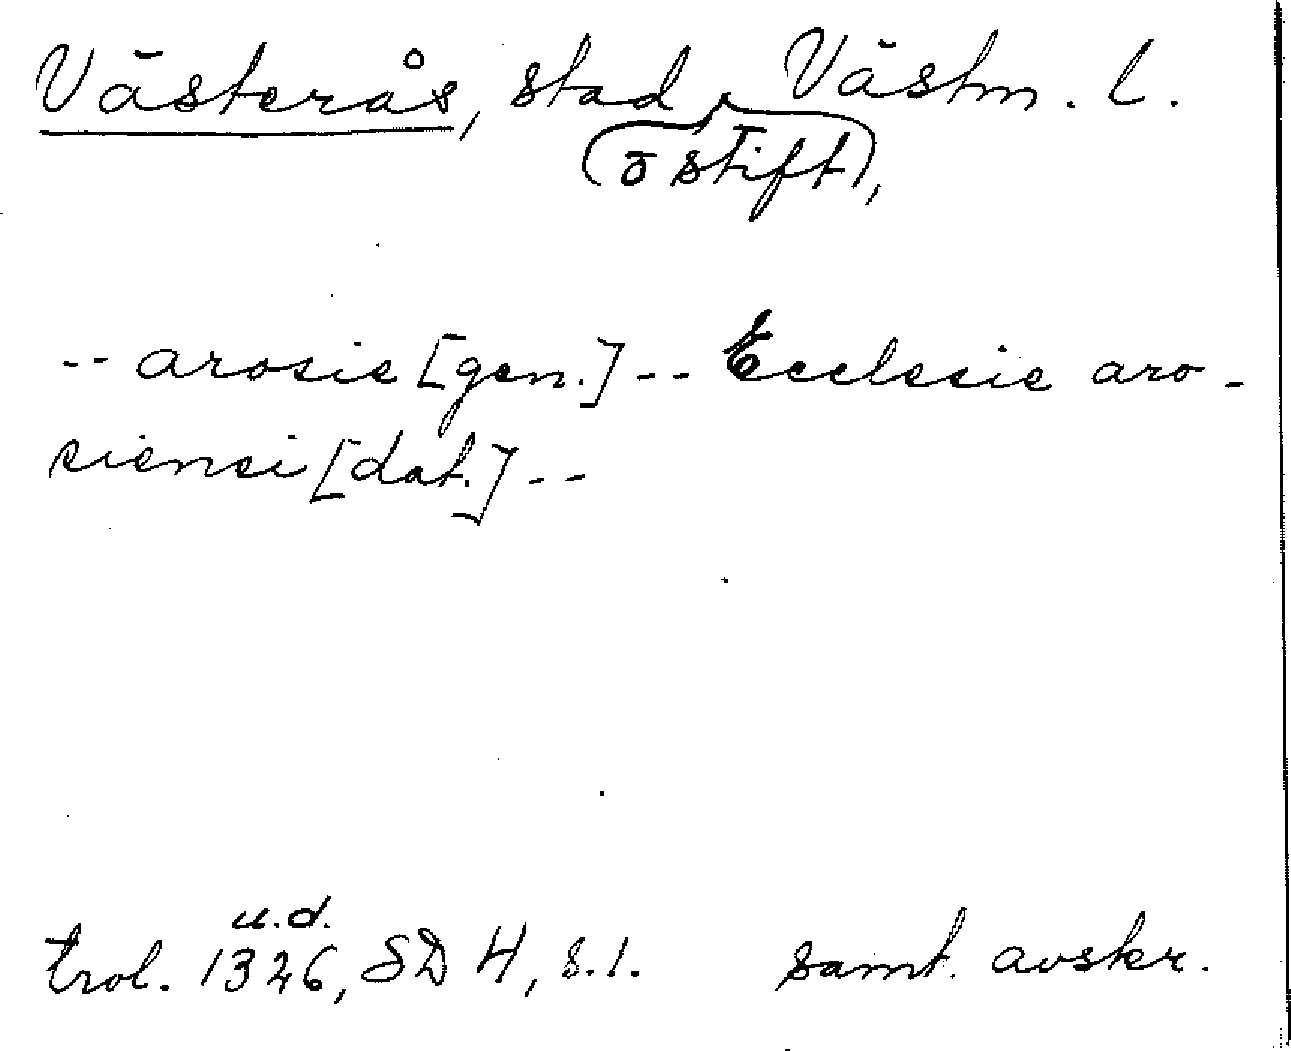 Västerås, stad, Västm. l.
(o stift),
-- arosie [gen.] -- Ecclesie aro-
siensi [dat.] --
u.d.
trol. 1326, SD 4, s.1. samt. avskr.